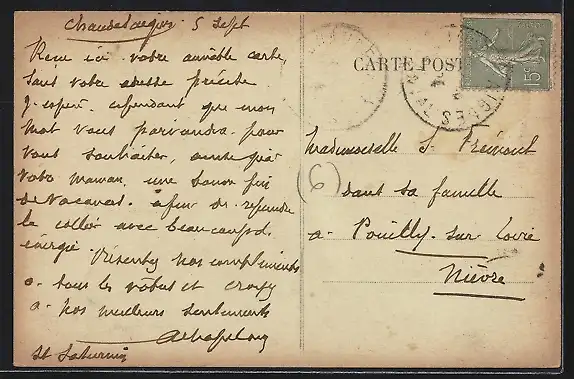 Chaudesaigues 5 Sept
Reçu ici votre aimable carte,
sans votre adresse précise
j'espère cependant que mon
mot vous parviendra pour
vous souhaiter, ainsi qu'à
votre maman, une bonne fin
de vacances. afin de reprendre
le collier avec beaucoup d'
énergie.
Présentez nos compliments
a tous les vôtres et croyez
a nos meilleurs sentiments
St Saturnin
CARTE POST
15c
(6)
Mademoiselle S. Frémont
dans sa famille
a Pouilly-sur Loire
Nièvre